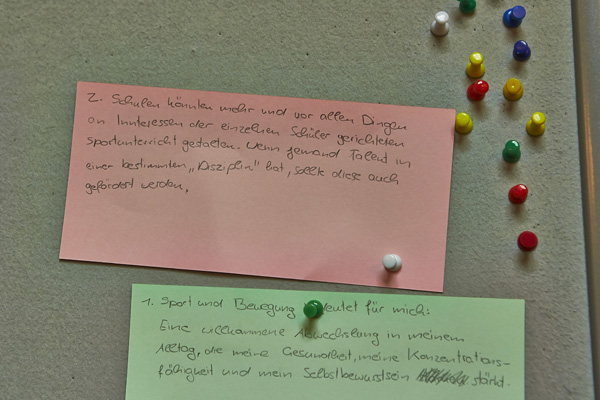 2. Schulen könnten mehr und vor allen Dingen
an Innteressen der einzelnen Schüler gerichteten
Sportunterricht gestalten. Wenn jemand Talent in
einer bestimmten „Disziplin" hat, sollte diese auch
gefördert werden.
1. Sport und Bewegung eutet für mich:
Eine willkommene Abwechslung in meinem
Alltag, die meine Gesundheit, meine Konzentrations-
fähigkeit und mein Selbstbewusstsein stärkt.